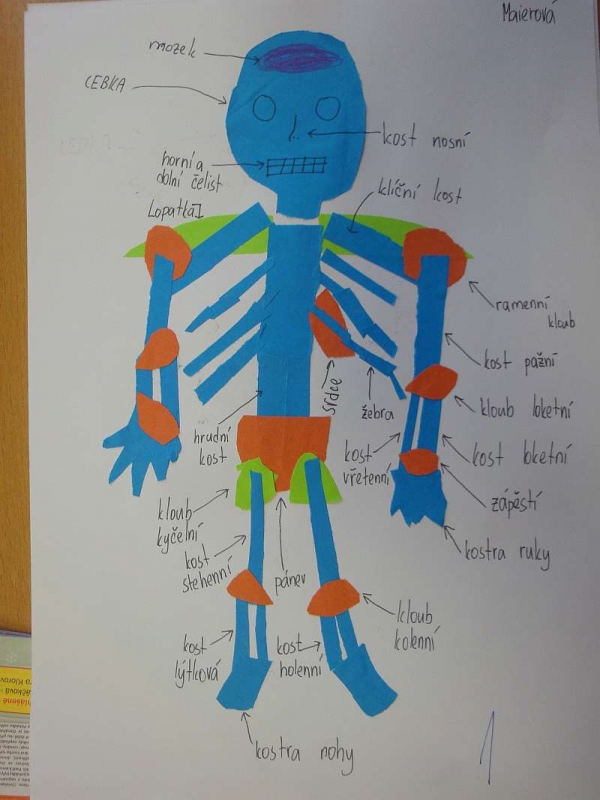 Maierová
mozek
LEBKA
kost nosní
horní a
dolní čelist
klíční kost
Lopatka
ramenní
kloub
kost pažní
srdce
žebra
kloub loketní
hrudní
kost
kost
vřetenní
kost loketní
zápěstí
kloub
kyčelní
kostra ruky
kost
stehenní
pánev
kloub
kolenní
kost
lýtková
kost
holenní
kostra nohy
1